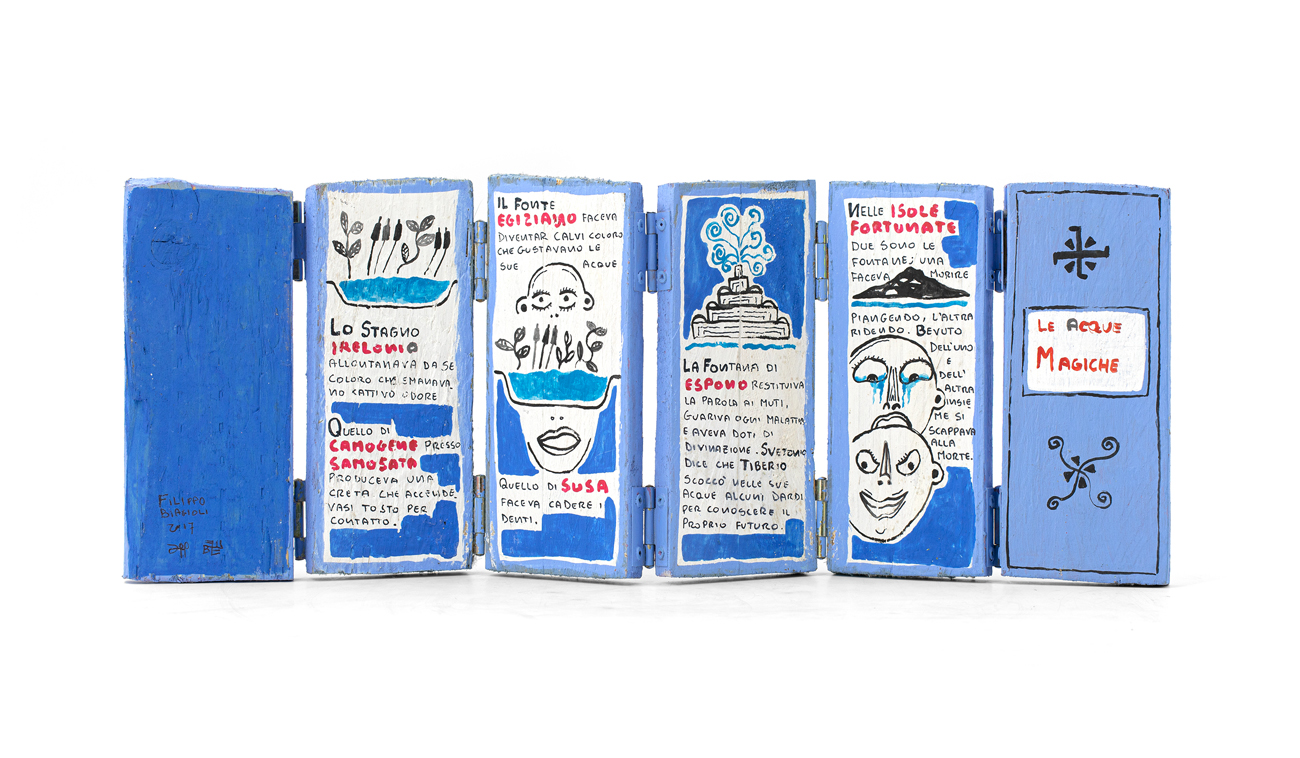 FILIPPO
BIAGIOLI
2017
LO STAGNO
IRELONIO
ALLONTANAVA DA SE
COLORO CHE EMANAVA
NO CATTIVO ODORE
QUELLO DI
CAMOGENE PRESSO
SAMOSATA
PRODUCEVA UNA
CRETA CHE ACCENDE
VASI TOSTO PER
CONTATTO.
IL FONTE
EGIZIANO FACEVA
DIVENTAR CALVI COLORO
CHE GUSTAVANO LE
SUE ACQUE
QUELLO DI SUSA
FACEVA CADERE I
DENTI.
LA FONTANA DI
ESPONO RESTITUIVA
LA PAROLA AI MUTI,
GUARIVA OGNI MALATTIA
E AVEVA DOTI DI
DIVINAZIONE. SVETONIO
DICE CHE TIBERIO
SCOCCÒ NELLE SUE
ACQUE ALCUNI DARDI
PER CONOSCERE IL
PROPRIO FUTURO.
NELLE ISOLE
FORTUNATE
DUE SONO LE
FONTANE; UNA
FACEVA MORIRE
PIANGENDO, L'ALTRA
RIDENDO. BEVUTO
DELL'UNO
E
DELL'
ALTRA
INSIE
ME SI
SCAPPAVA
ALLA
MORTE.
LE ACQUE
MAGICHE